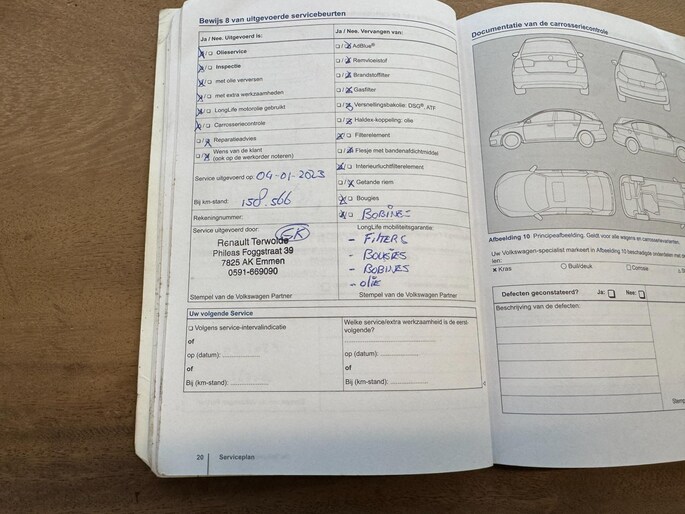 Bewijs 8 van uitgevoerde servicebeurten
Ja / Nee. Uitgevoerd is:
Olieservice
Inspectie
met olie verversen
met extra werkzaamheden
LongLife motorolie gebruikt
Carrosseriecontrole
Reparatieadvies
Wens van de klant
(ook op de werkorder noteren)
Service uitgevoerd op: 04-01-2023
Bij km-stand: 158.566
Rekeningnummer:
Service uitgevoerd door: GK
Renault Terwolde
Phileas Foggstraat 39
7825 AK Emmen
0591-669090
Stempel van de Volkswagen Partner
Ja / Nee. Vervangen van:
AdBlue®
Remvloeistof
Brandstoffilter
Gasfilter
Versnellingsbakolie: DSG®, ATF
Haldex-koppeling: olie
Filterelement
Flesje met bandenafdichtmiddel
Interieurluchtfilterelement
Getande riem
Bougies
BOBINES
LongLife mobiliteitsgarantie:
- FILTERS
- BOUGIES
- BOBINES
- OLIE
Stempel van de Volkswagen Partner
Uw volgende Service
Volgens service-intervalindicatie
of
op (datum):
of
Bij (km-stand):
Welke service/extra werkzaamheid is de eerst-
volgende?
op (datum):
of
Bij (km-stand):
20 Serviceplan
Documentatie van de carrosseriecontrole
Afbeelding 10 Principeafbeelding. Geldt voor alle wagens en carrosserievarianten.
Uw Volkswagen-specialist markeert in Afbeelding 10 beschadigde onderdelen met
len:
Kras Buil/deuk
Defecten geconstateerd? Ja: Nee:
Beschrijving van de defecten: